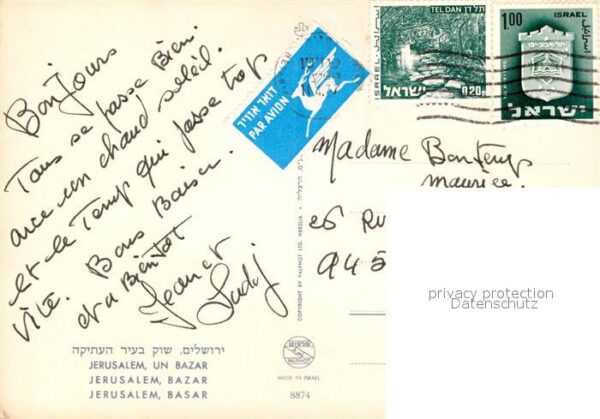 Bonjours
Tous se passe Bien.
avec un chaud soleil.
et le Temp qui passe trop
vite. Bons Baiser.
et a Bientôt
Jean et
דואר אויר
PAR AVION
ISRAEL
תל דן TEL DAN
0.20
ישראל
اسرائيل
1.00
ISRAEL
اسرائيل
תל-אביב-יפו
ישראל
Madame Bontemps
Maurice.
26 RU
945
privacy protection
Datenschutz
COPYRIGHT BY PALPHOT LTD. HERZLIA
ירושלים, שוק בעיר העתיקה
JERUSALEM, UN BAZAR
JERUSALEM, BAZAR
JERUSALEM, BASAR
פלפוט
PALPHOT
MADE IN ISRAEL
8874